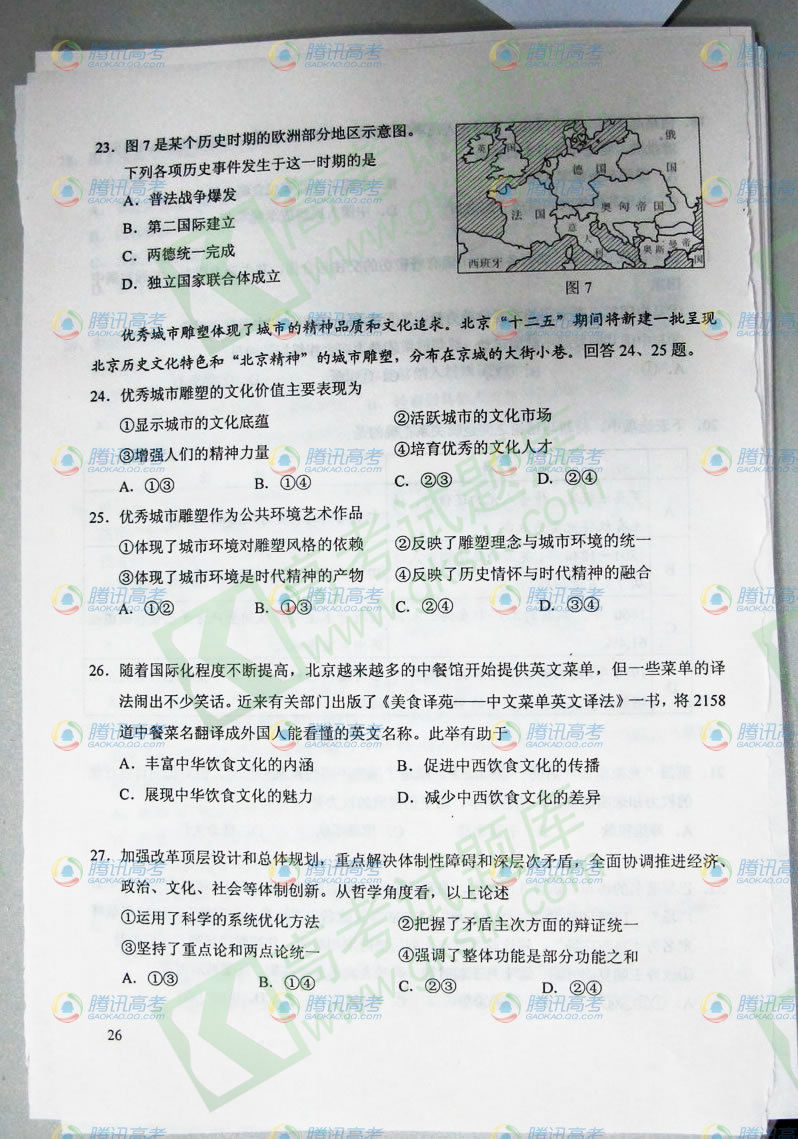 23. 图7是某个历史时期的欧洲部分地区示意图。
下列各项历史事件发生于这一时期的是
A. 普法战争爆发
B. 第二国际建立
C. 两德统一完成
D. 独立国家联合体成立
英
国
俄
国
德 国
法 国
奥匈帝国
意
大
利
奥斯曼帝
国
西班牙
图7
优秀城市雕塑体现了城市的精神品质和文化追求。北京“十二五”期间将新建一批呈现
北京历史文化特色和“北京精神”的城市雕塑，分布在京城的大街小巷。回答24、25题。
24. 优秀城市雕塑的文化价值主要表现为
①显示城市的文化底蕴 ②活跃城市的文化市场
③增强人们的精神力量 ④培育优秀的文化人才
A. ①③ B. ①④ C. ②③ D. ②④
25. 优秀城市雕塑作为公共环境艺术作品
①体现了城市环境对雕塑风格的依赖 ②反映了雕塑理念与城市环境的统一
③体现了城市环境是时代精神的产物 ④反映了历史情怀与时代精神的融合
A. ①② B. ①③ C. ②④ D. ③④
26. 随着国际化程度不断提高，北京越来越多的中餐馆开始提供英文菜单，但一些菜单的译
法闹出不少笑话。近来有关部门出版了《美食译苑——中文菜单英文译法》一书，将2158
道中餐菜名翻译成外国人能看懂的英文名称。此举有助于
A. 丰富中华饮食文化的内涵 B. 促进中西饮食文化的传播
C. 展现中华饮食文化的魅力 D. 减少中西饮食文化的差异
27. 加强改革顶层设计和总体规划，重点解决体制性障碍和深层次矛盾，全面协调推进经济、
政治、文化、社会等体制创新。从哲学角度看，以上论述
①运用了科学的系统优化方法 ②把握了矛盾主次方面的辩证统一
③坚持了重点论和两点论统一 ④强调了整体功能是部分功能之和
A. ①③ B. ①④ C. ②③ D. ②④
26
腾讯高考
GAOKAO.QQ.COM
高考试题库
www.gkstk.com